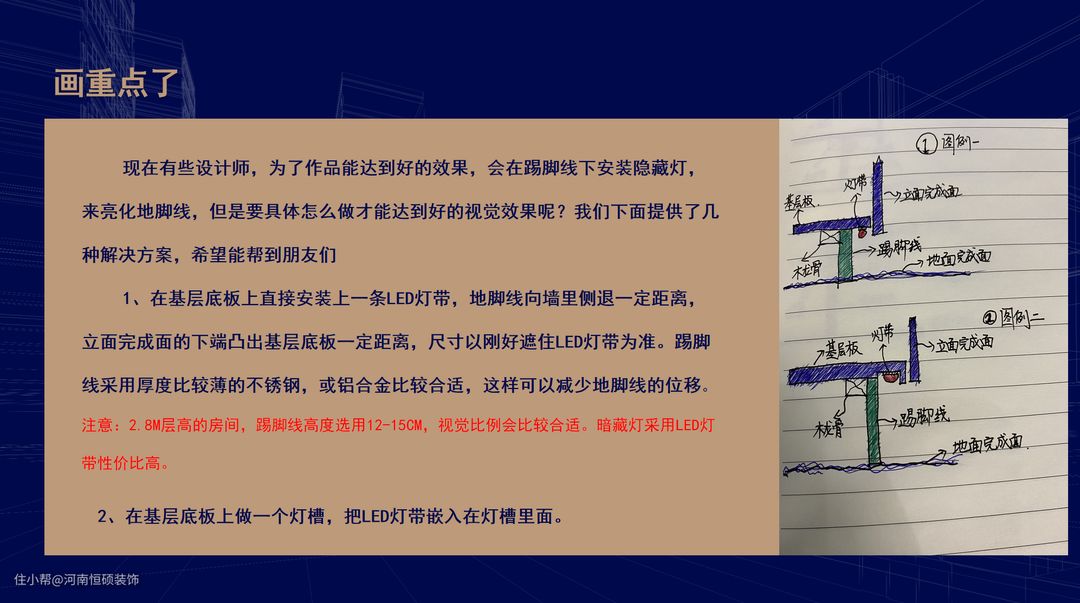 画重点了
现在有些设计师，为了作品能达到好的效果，会在踢脚线下安装隐藏灯，
来亮化地脚线，但是要具体怎么做才能达到好的视觉效果呢？我们下面提供了几
种解决方案，希望能帮到朋友们
1、在基层底板上直接安装上一条LED灯带，地脚线向墙里侧退一定距离，
立面完成面的下端凸出基层底板一定距离，尺寸以刚好遮住LED灯带为准。踢脚
线采用厚度比较薄的不锈钢，或铝合金比较合适，这样可以减少地脚线的位移。
注意：2.8M层高的房间，踢脚线高度选用12-15CM，视觉比例会比较合适。暗藏灯采用LED灯
带性价比高。
2、在基层底板上做一个灯槽，把LED灯带嵌入在灯槽里面。
① 图例一
灯带
基层板.
立面完成面
踢脚线
木龙骨
地面完成面
② 图例二
灯带
基层板
立面完成面
踢脚线
木龙骨
地面完成面.
住小帮@河南恒硕装饰